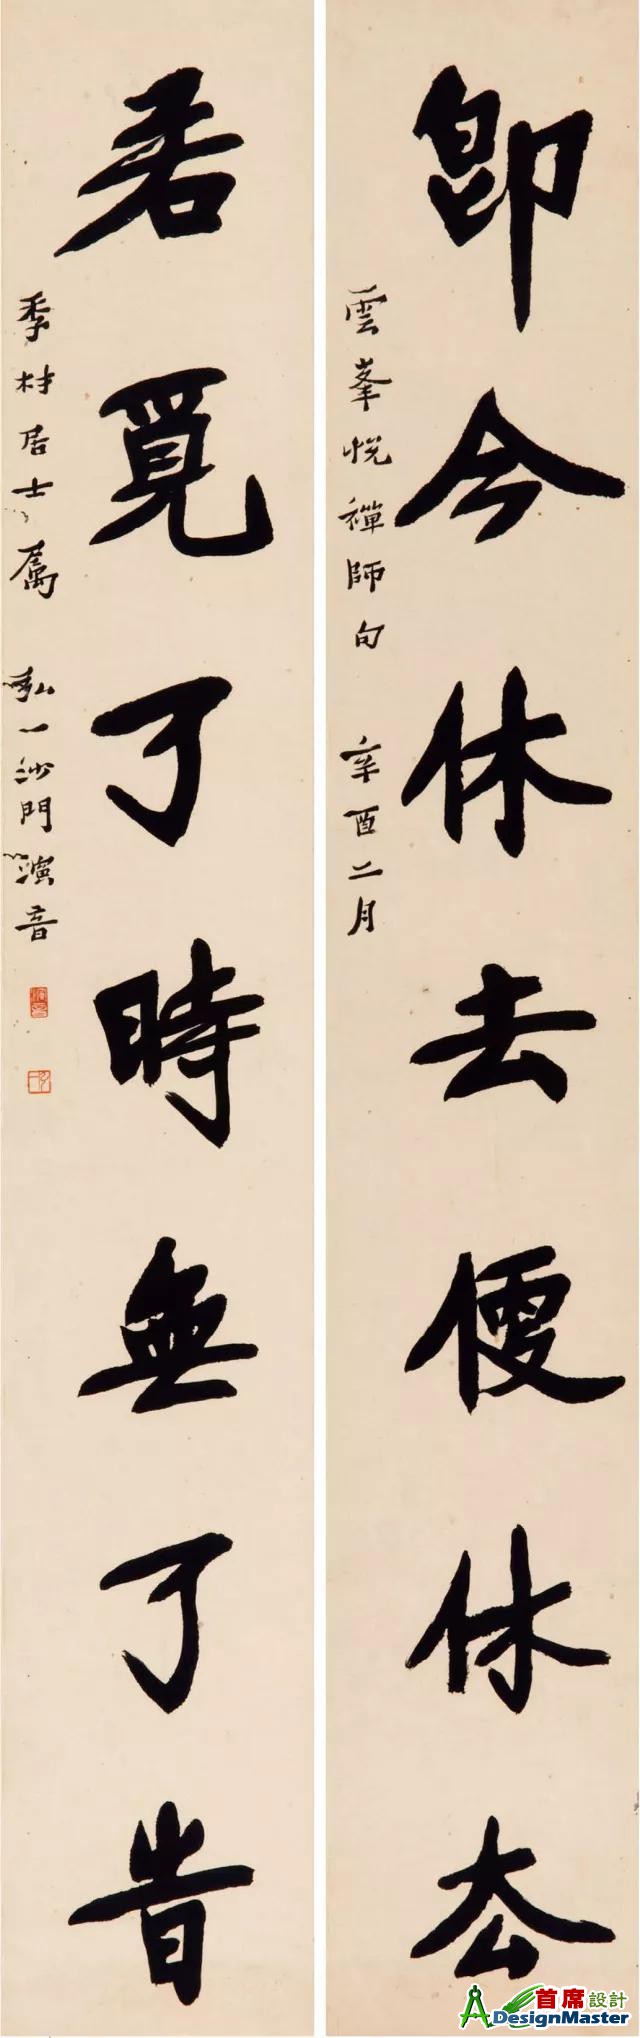 即今休去便休厺
雲峯悅禪師句 辛酉二月
若覓了時無了旹
季材居士屬 弘一沙門演音
首席設計
ADesignMaster